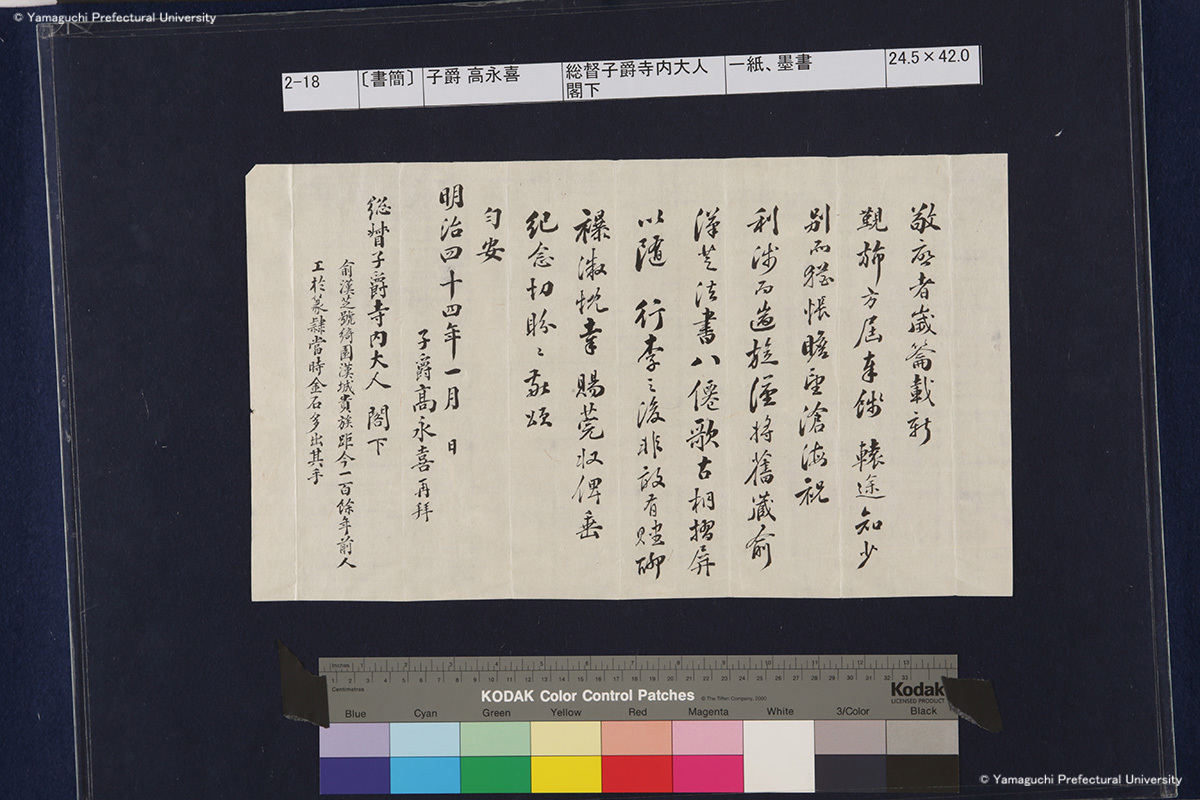 © Yamaguchi Prefectural University
2-18 〔書簡〕 子爵 高永喜 総督子爵寺内大人閣下 一紙、墨書 24.5×42.0
敬啓者歲籥載新
覲旆方届奉餞 轅途知少
別而猶悵瞻望滄海祝
利涉而遄旋謹將舊藏俞
漢芝法書八僊歌古桐摺屏
以隨 行李之後非敢有贐聊
襮微忱幸賜莞收俾垂
紀念切盼〻敬頌
勻安
明治四十四年一月 日
子爵高永喜再拜
総督子爵寺内大人 閣下
俞漢芝號綺園漢城貴族距今一百餘年前人
工於篆隸當時金石多出其手
Inches
Centimetres
KODAK Color Control Patches
© The Tiffen Company, 2000
Kodak
LICENSED PRODUCT
Blue Cyan Green Yellow Red Magenta White 3/Color Black
© Yamaguchi Prefectural University